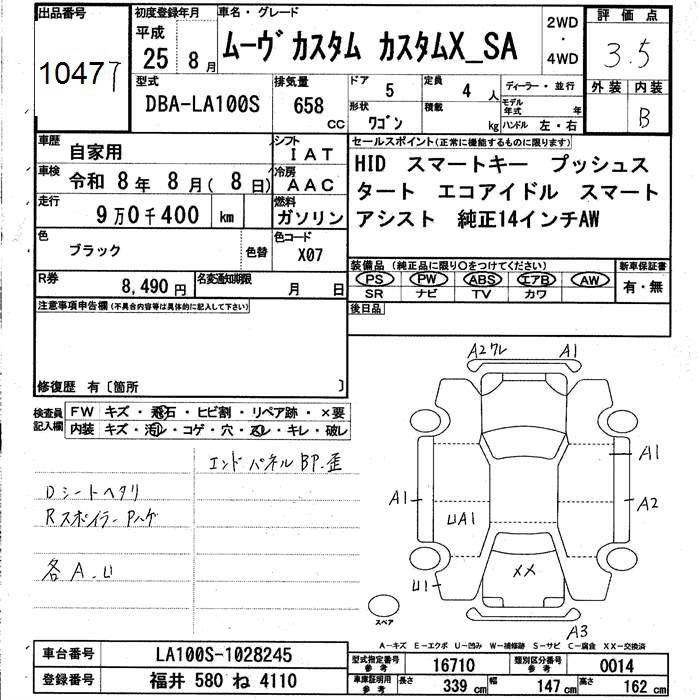 出品番号
10477
初度登録年月
平成
25 8月
車名・グレード
ムーヴカスタム カスタムX_SA
2WD
・
4WD
評価点
3.5
型式
DBA-LA100S
排気量
658
CC
ドア
5
定員
4 人
形状
ワゴン
積載
kg
ディーラー・並行
モデル
年式 年
ハンドル 左・右
外装 内装
B
車歴
自家用
シフト
IAT
車検
令和 8年 8月( 8日)
冷房
AAC
走行
9万0千400 km
燃料
ガソリン
色
ブラック
色替
色コード
X07
R券
8,490円
名変通知期限
月 日
セールスポイント(正常に機能するものに限ります)
HID スマートキー プッシュス
タート エコアイドル スマート
アシスト 純正14インチAW
装備品(純正品に限り○をつけてください)
PS PW ABS エアB AW
SR ナビ TV カワ
新車保証書
有・無
後日品
注意事項申告欄(不具合内容等は具体的に記入して下さい)
修復歴 有〔箇所 〕
検査員
記入欄
FW キズ・飛石・ヒビ割・リペア跡・×要
内装 キズ・汚レ・コゲ・穴・スレ・キレ・破レ
エンドパネルBP.歪
Dシートヘタリ
RスポイラーPハゲ
各A.U
A2ワレ
A1
A1
A1
A2
UA1
U1
XX
A3
スペア
A-キズ E-エクボ U-凹み W-補修跡 S-サビ C-腐食 XX-交換済
車台番号
LA100S-1028245
登録番号
福井 580 ね 4110
型式指定番号
参考
16710
類別区分番号
参考
0014
車庫証明用
参考
長さ 339 cm
幅 147 cm
高さ 162 cm